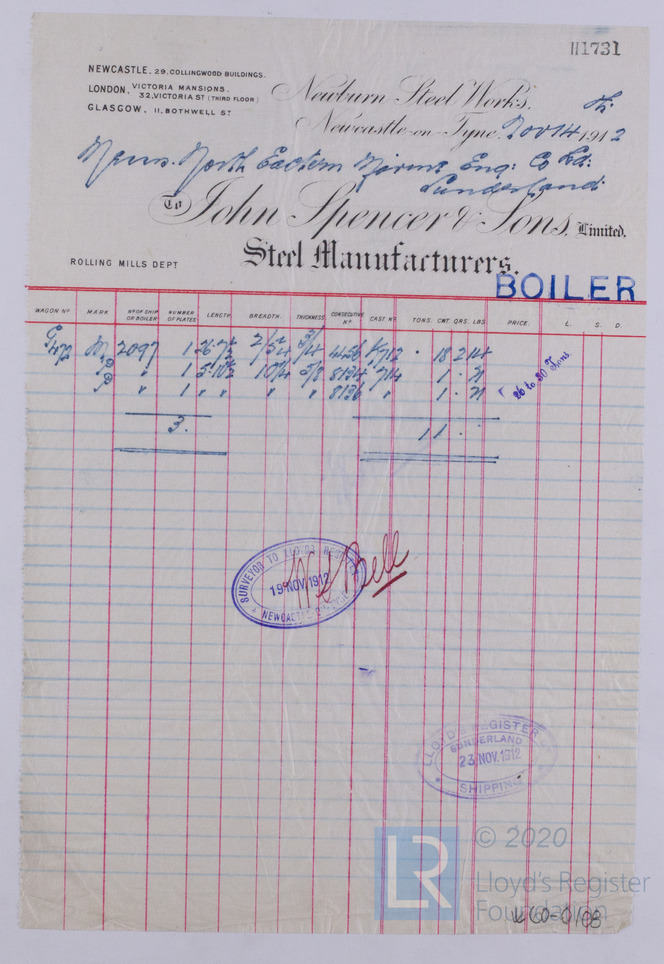 111731
NEWCASTLE. 29, COLLINGWOOD BUILDINGS.
LONDON. VICTORIA MANSIONS. 32, VICTORIA ST (THIRD FLOOR)
GLASGOW. 11, BOTHWELL ST
Newburn Steel Works,
Newcastle-on-Tyne, Nov 14 1912
Messrs. North Eastern Marine Eng: Co Ld:
Sunderland:
To John Spencer & Sons, Limited,
ROLLING MILLS DEPT
Steel Manufacturers.
BOILER
WAGON Nº MARK Nº OF SHIP OR BOILER NUMBER OF PLATES LENGTH BREADTH. THICKNESS CONSECUTIVE Nº CAST Nº TONS. CWT. QRS. LBS PRICE. L. S. D.
2097 1 18 2 14
" 1 5/8 8134 714 1 "
" 1 " " " 8136 " 1 "
26 to 30 Tons
3. 1 1
SURVEYOR TO LLOYD'S REGISTER
19 NOV. 1912
NEWCASTLE
Bell
LLOYD'S REGISTER
SUNDERLAND
23 NOV. 1912
SHIPPING
LR
© 2020
Lloyd's Register
Foundation